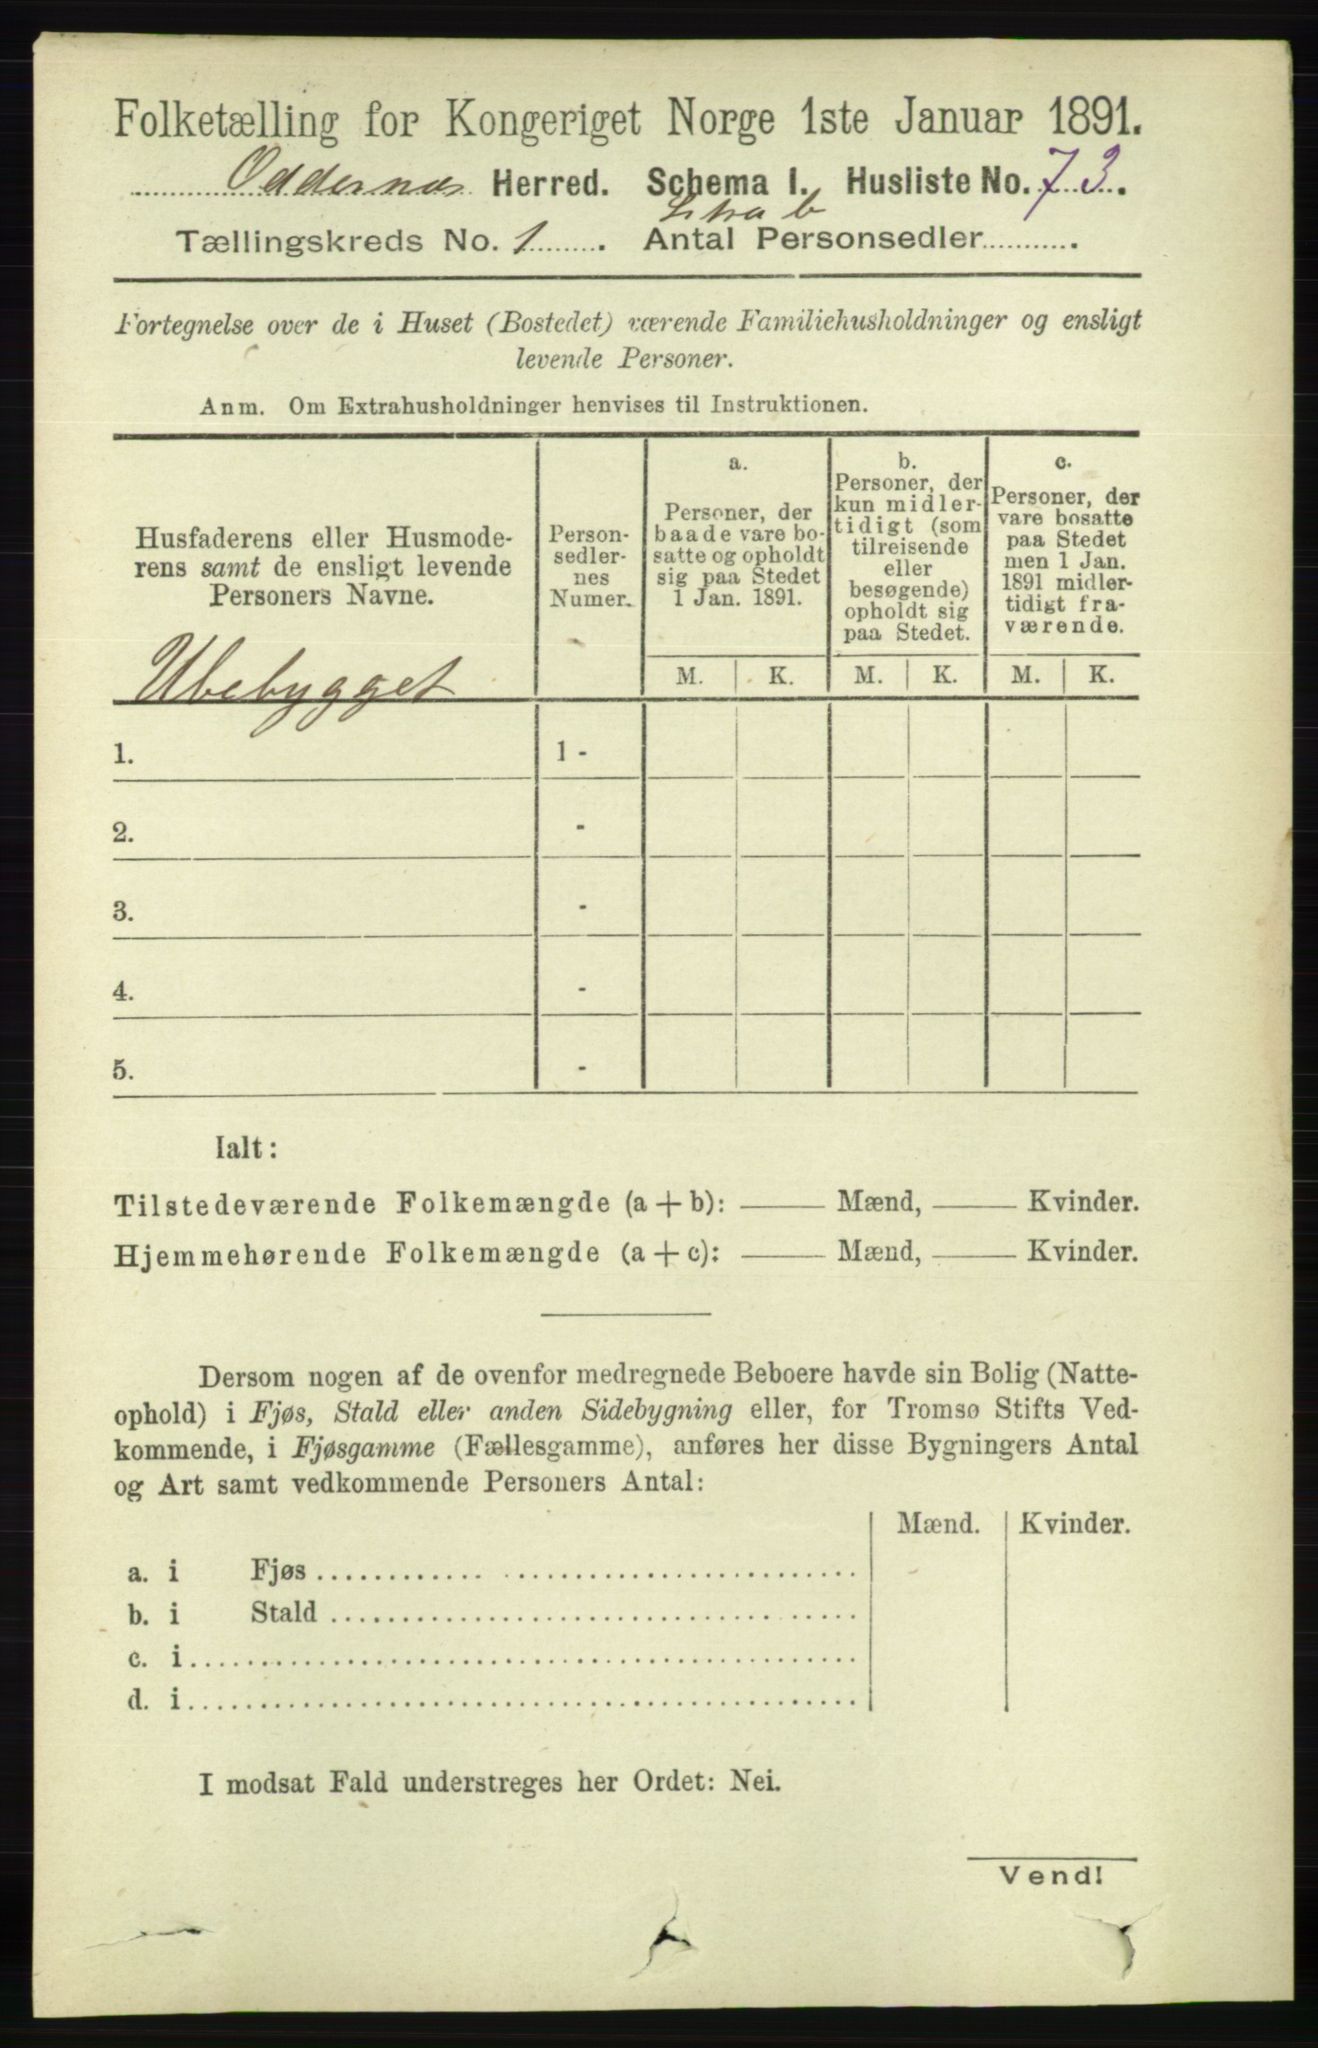 Folketælling for Kongeriget Norge 1ste Januar 1891.
Oddernæs Herred. Schema I. Husliste No. 73.
Litra b
Tællingskreds No. 1. Antal Personsedler.
Fortegnelse over de i Huset (Bostedet) værende Familiehusholdninger og ensligt
levende Personer.
Anm. Om Extrahusholdninger henvises til Instruktionen.
Husfaderens eller Husmode-
rens samt de ensligt levende
Personers Navne.
Person-
sedler-
nes
Numer.
a.
Personer, der
baade vare bo-
satte og opholdt
sig paa Stedet
1 Jan. 1891.
b.
Personer, der
kun midler-
tidigt (som
tilreisende
eller
besøgende)
opholdt sig
paa Stedet.
c.
Personer, der
vare bosatte
paa Stedet
men 1 Jan.
1891 midler-
tidigt fra-
værende.
M. K. M. K. M. K.
Ubebygget
1. 1 -
2. -
3. -
4. -
5. -
Ialt:
Tilstedeværende Folkemængde (a + b): — Mænd, — Kvinder.
Hjemmehørende Folkemængde (a + c): — Mænd, — Kvinder.
Dersom nogen af de ovenfor medregnede Beboere havde sin Bolig (Natte-
ophold) i Fjøs, Stald eller anden Sidebygning eller, for Tromsø Stifts Ved-
kommende, i Fjøsgamme (Fællesgamme), anføres her disse Bygningers Antal
og Art samt vedkommende Personers Antal:
Mænd. Kvinder.
a. i Fjøs
b. i Stald
c. i
d. i
I modsat Fald understreges her Ordet: Nei.
Vend!